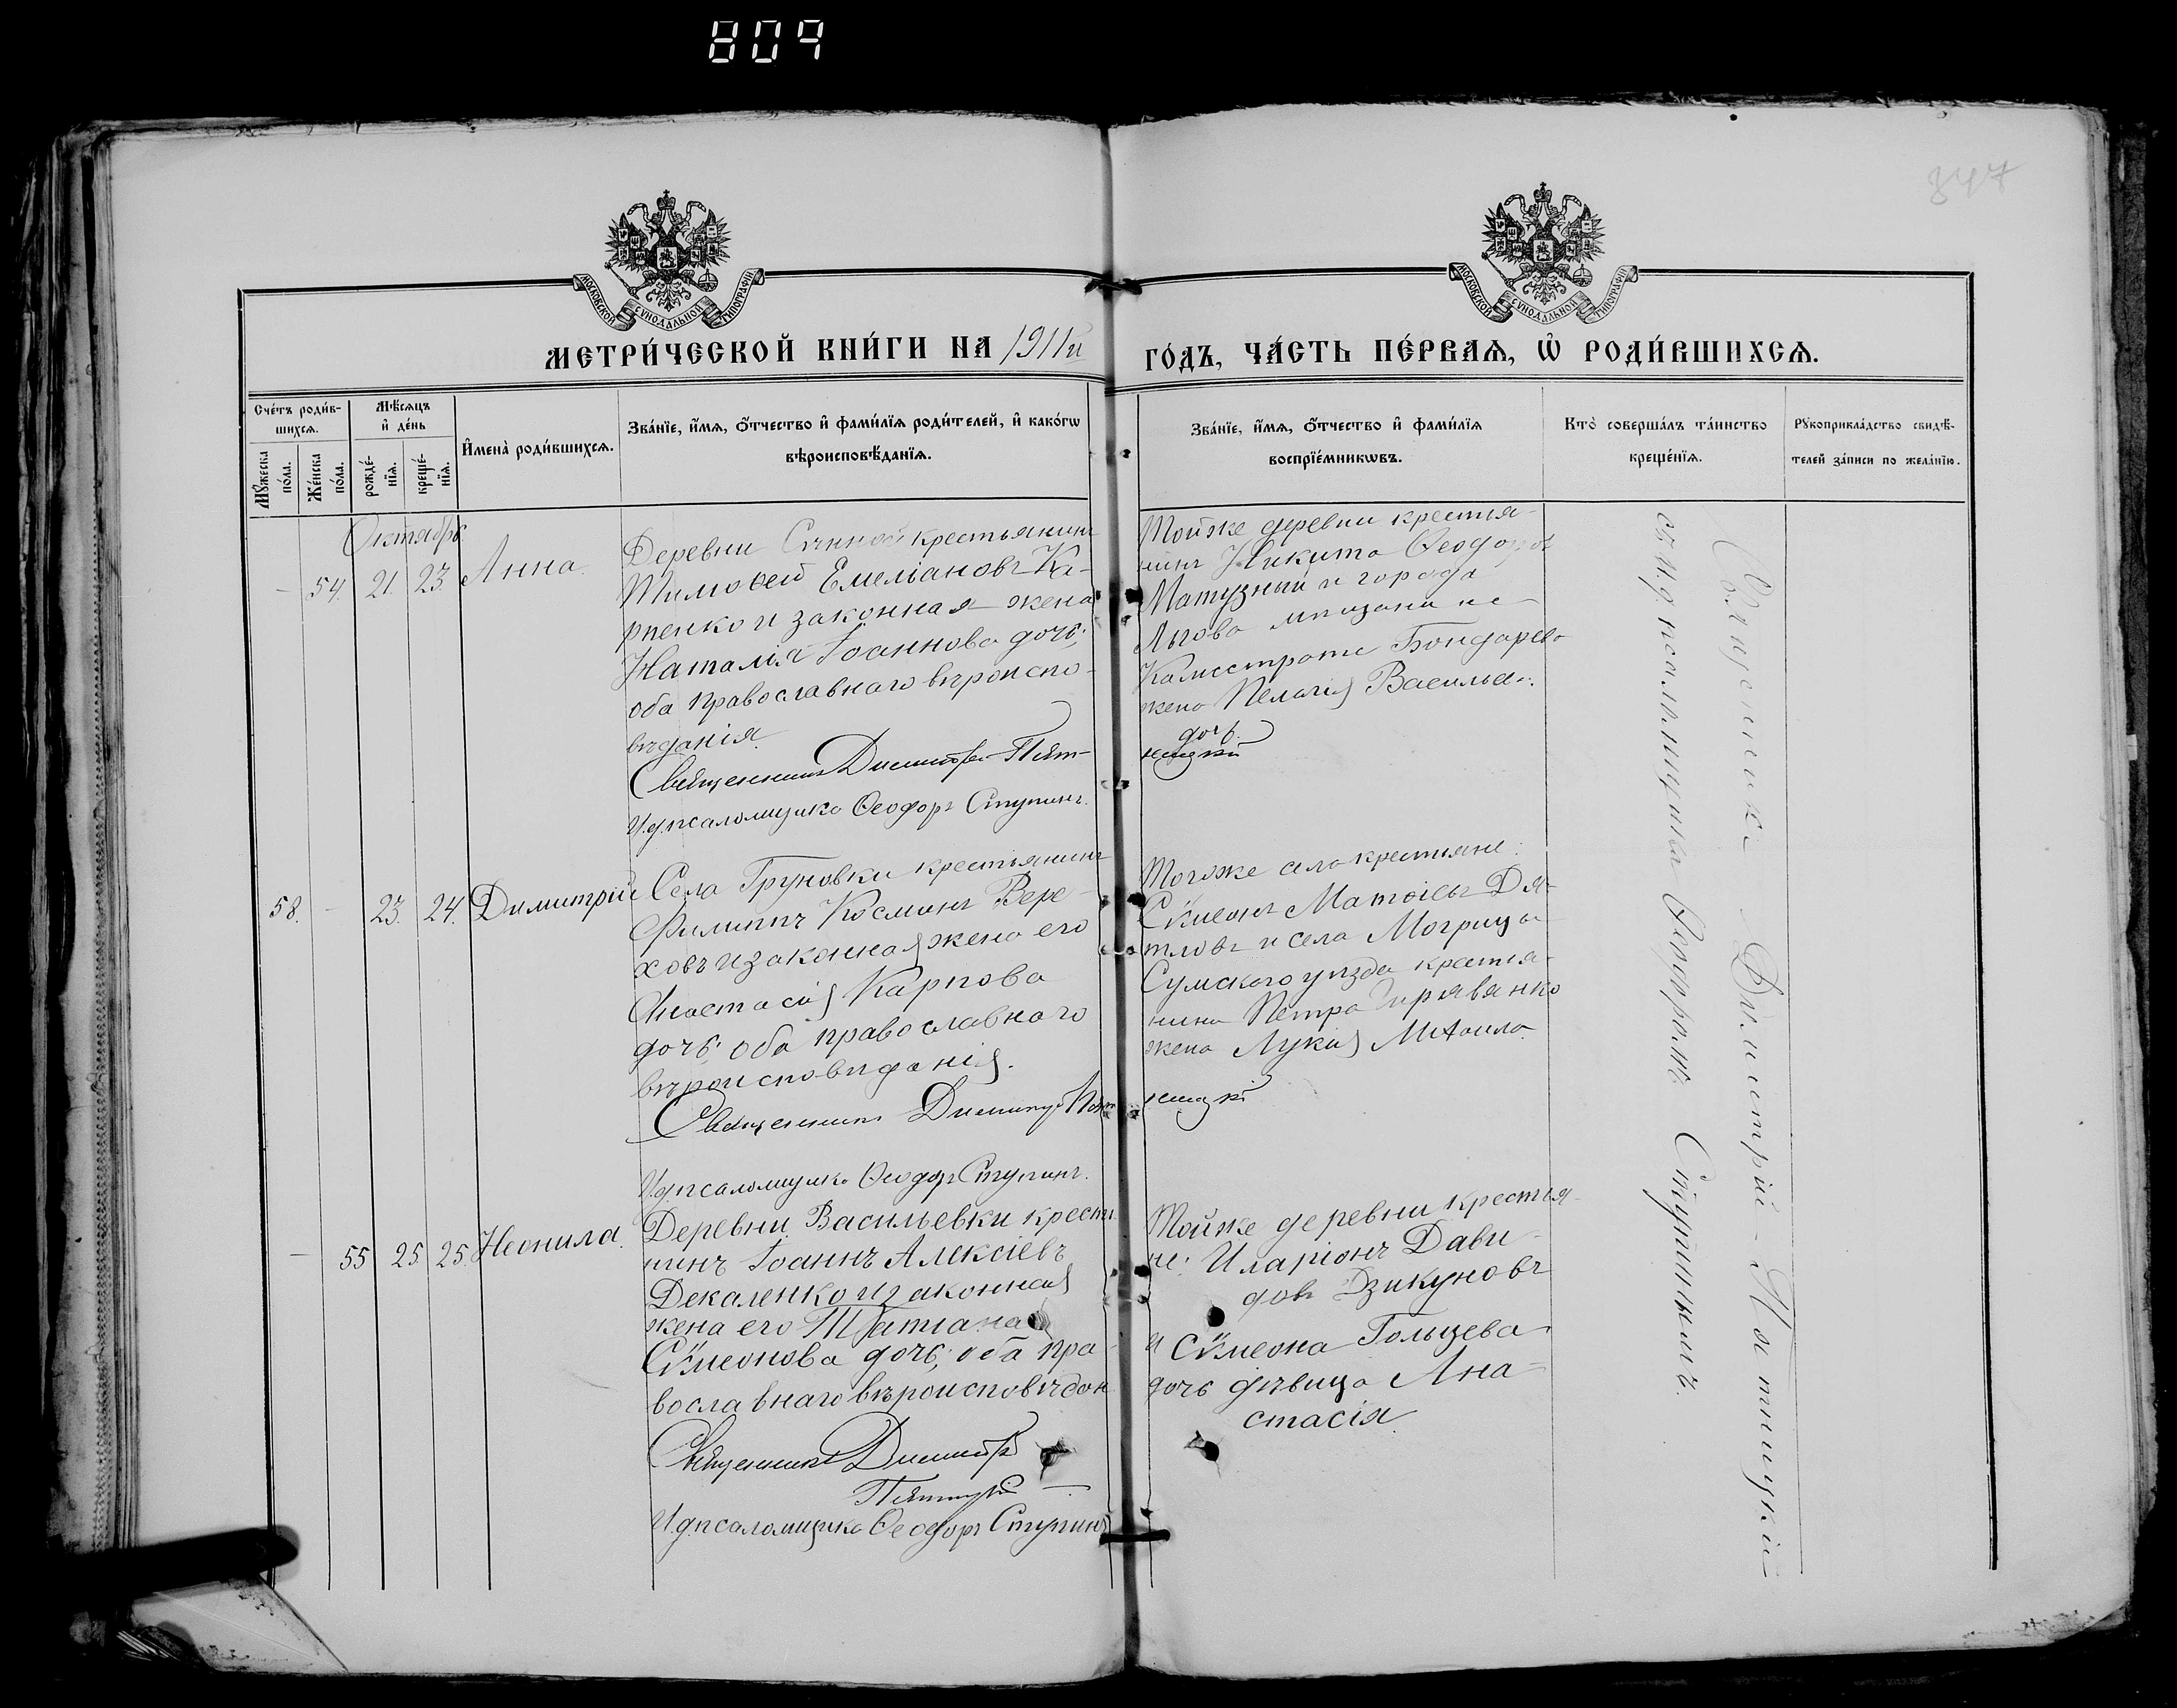 809
847
МОСКОВСКОЙ СѴНОДАЛЬНОЙ ТИПОГРАФІИ
МОСКОВСКОЙ СѴНОДАЛЬНОЙ ТИПОГРАФІИ
МЕТРИ́ЧЕСКОЙ КНИ́ГИ НА 1911й ГО́ДЪ, ЧА́СТЬ ПЕ́РВАѦ, Ѡ҆ РОДИ́ВШИХСѦ.
Сче́тъ роди́в-
шихсѧ.
Мꙋ́жеска
по́ла.
Же́нска
по́ла.
Мѣ́сѧцъ
и҆ де́нь
рожде́-
нїѧ.
креще́-
нїѧ.
И҆мена̀ роди́вшихсѧ.
Зва́нїе, и҆́мѧ, ѻ҆́тчество и҆ фами́лїѧ роди́телей, и҆ како́гѡ
вѣроисповѣ́данїѧ.
Зва́нїе, и҆́мѧ, ѻ҆́тчество и҆ фами́лїѧ
воспрїе́мникѡвъ.
Кто̀ соверша́лъ та́инство
креще́нїѧ.
Рꙋкоприкла́дство свидѣ́-
телей за́писи по жела́нїю.
Октябрь
— 54. 21. 23. Анна.
Деревни крестьянинъ
Тимоѳей Емеліановъ Ка-
рпенко и законная жена
Наталія Іоаннова дочь;
оба православнаго вѣроиспо-
вѣданія.
Священникъ Димитрій Пят-
И.д.псаломщика Ѳеодоръ Ступинъ.
Тойже деревни крестья-
нинъ Никита Ѳеодоров
Матузный и города
Льгова мѣщанина
Калистрата Бондарева
жена Пелагія Васильев.
дочь.
ницкій
58. — 23. 24. Димитрій
Села Груновки крестьянинъ
Филиппъ Косминъ Вере-
ховъ и законная жена его
Анастасія Карпова
дочь; оба православнаго
вѣроисповѣданія.
Священникъ Димитрій Пят
И.д.псаломщика Ѳеодоръ Ступинъ.
Тогоже села крестьяне:
Сѵмеонъ Матѳіевъ Дя-
тловъ и села Могрица
Сумскаго уѣзда крестья-
нина Петра
жена Лукія Михаила.
ницкій
— 55 25. 25. Неонила.
Деревни Васильевки крестья
нинъ Іоаннъ Алексіевъ
Декаленко и законная
жена его Татіана
Сѵмеонова дочь; оба пра-
вославнаго вѣроисповѣдан
Священникъ Димитрій
Пятницкій —
И.д.псаломщика Ѳеодоръ Ступинъ
Тойже деревни крестья-
не: Иларіонъ Дави-
довъ Дзикуновъ
и Сѵмеона Гольцева
дочь дѣвица Ана-
стасія.
Священникъ Димитрій Пятницкій
съ и.д.псаломщика Ѳеодоромъ Ступинымъ.